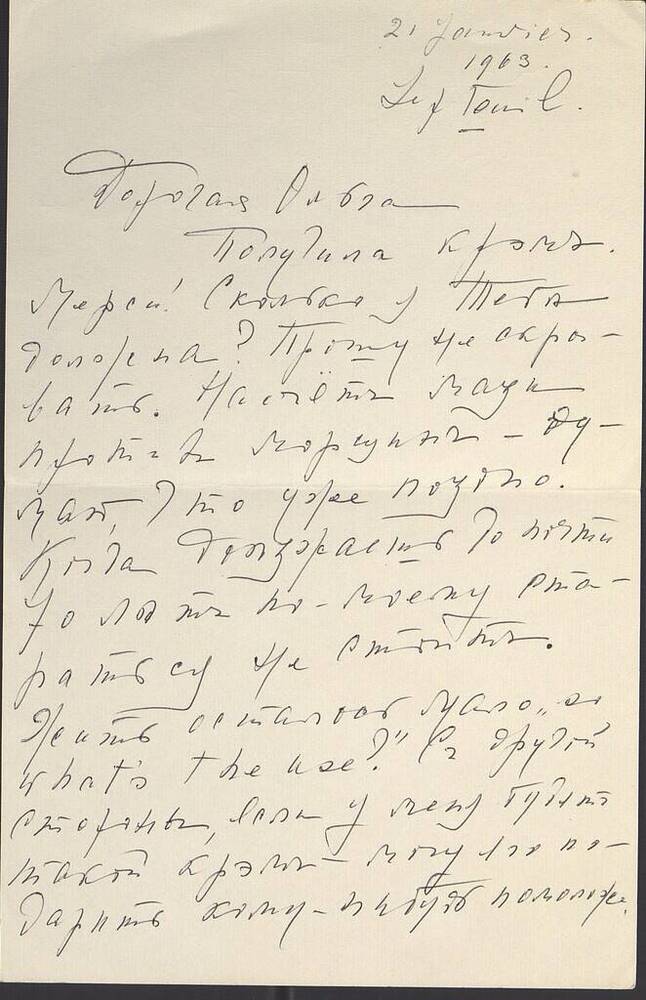 21 Janvier.
1963.
Дорогая Ольга
Получила крэмъ.
Мерси! Сколько я Тебѣ
должна? Прошу не скры-
вать. Насчётъ мази
противъ морщинъ – ду-
маю, что уже поздно.
Когда доѣзжаешь до почти
70 лѣтъ по-моему ста-
раться не стоитъ.
Жить осталось мало, „so
what's the use?" Съ другой
стороны, если у меня будетъ
такой крэмъ – могу его по-
дарить кому-нибудь помоложе.